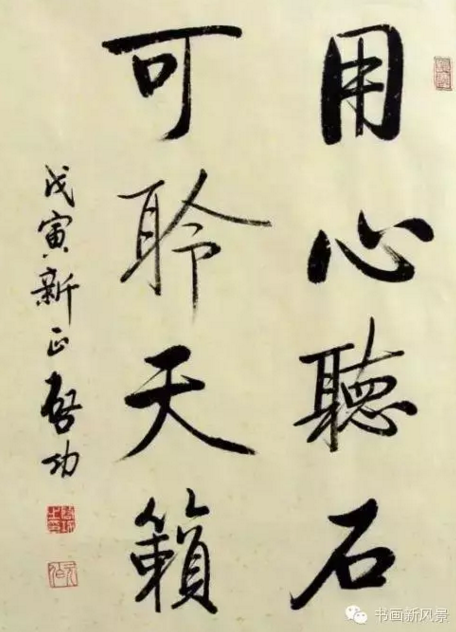 用心聽石
可聆天籟
戊寅新正啓功
书画新风景